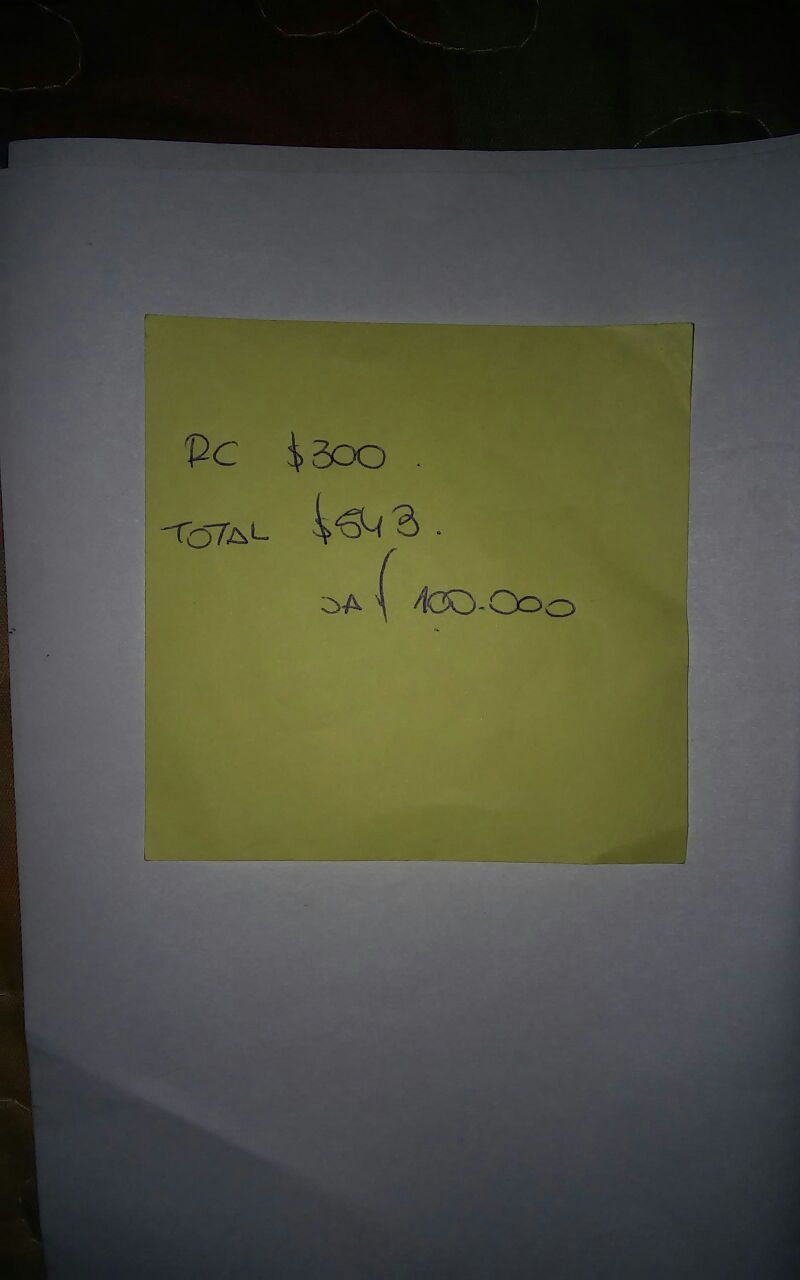 RC $300.
TOTAL $543.
SA/ 100.000